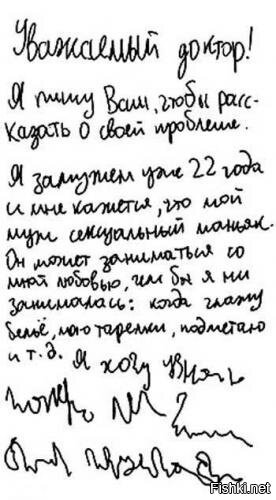 Уважаемый доктор!
Я пишу Вам, чтобы расс-
казать о своей проблеме.
Я замужем уже 22 года
и мне кажется, что мой
муж сексуальный маньяк.
Он может заниматься со
мной любовью, чем бы я ни
занималась: когда глажу
бельё, мою тарелки, подметаю
и т.д. Я хочу узнать
Fishki.net